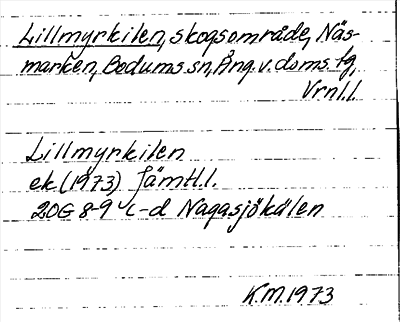 Lillmyrkilen, skogsområde, Näs-
marken, Bodums sn, Ång. v. doms. tg,
Vrnl.l.
Lillmyrkilen
ek (1973) Jämtl.l.
20G 8-9 c-d Nagasjökölen
K.M. 1973